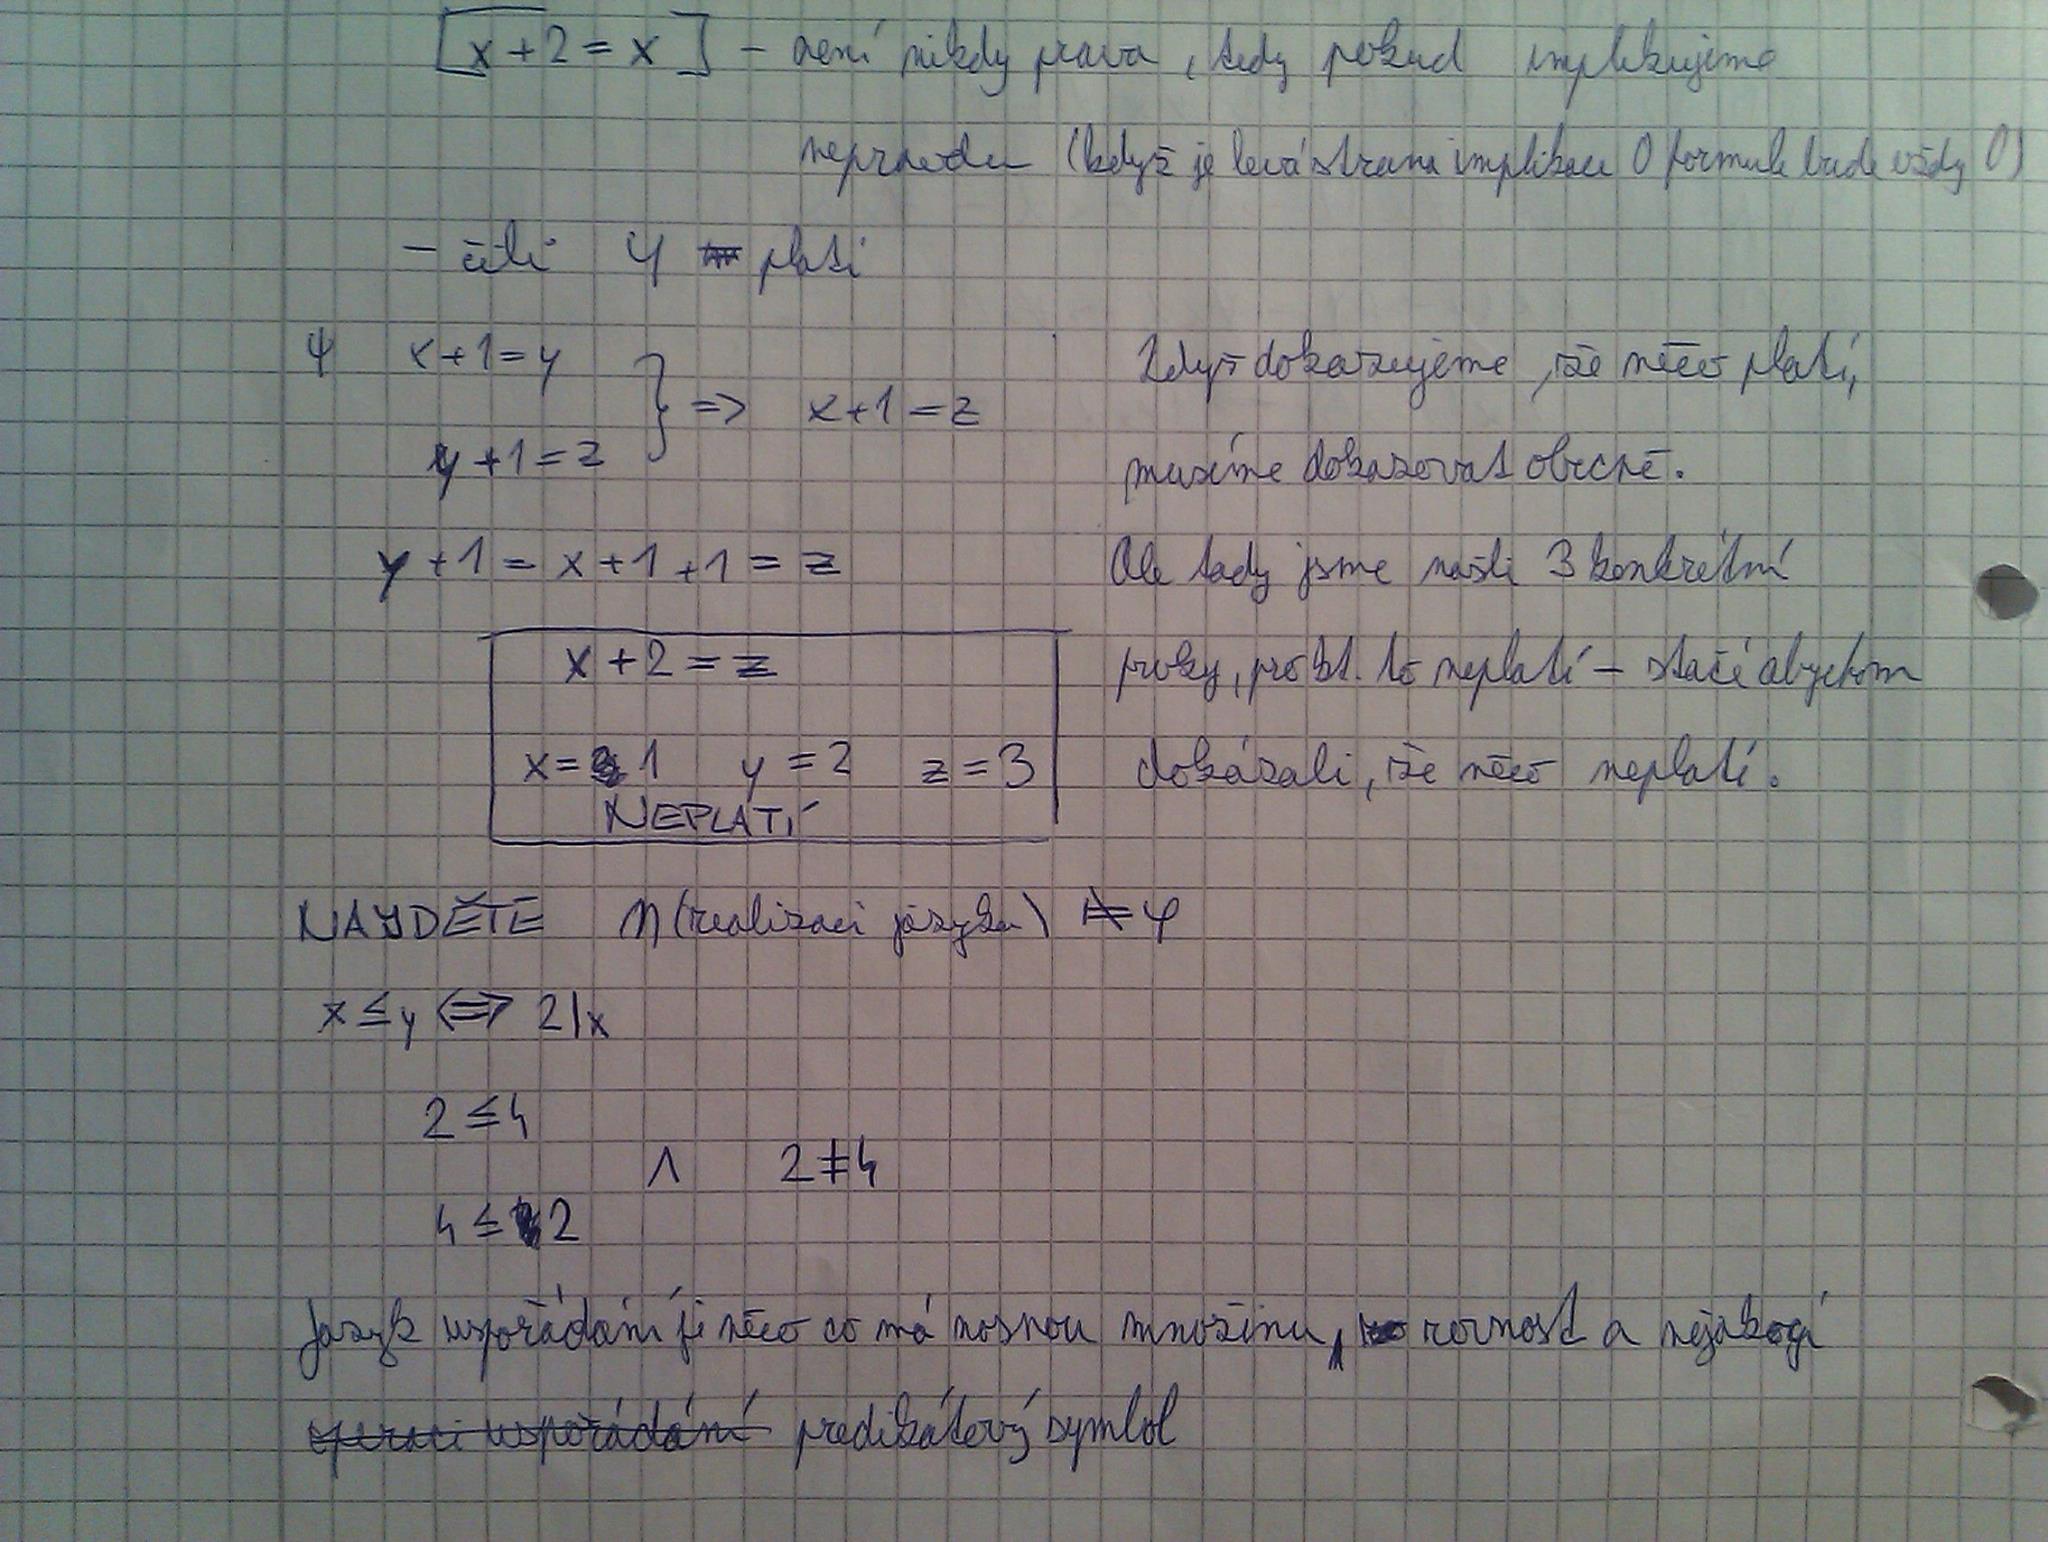 [x+2=x] – není nikdy prava, tedy pokud implikujeme
nepravdu (když je levá strana implikace 0 formule bude vždy 0)
– čili φ platí
ψ x+1=y
} => x+1=z
y+1=z
y+1=x+1+1=z
x+2=z
x=1 y=2 z=3
NEPLATÍ
Když dokazujeme, že něco platí,
musíme dokazovat obecně.
Ale tady jsme našli 3 konkrétní
prvky, pro kt. to neplatí – stačí abychom
dokázali, že něco neplatí.
NAJDĚTE (realizaci jazyka) ⊭ φ
x≤y <=> 2|x
2≤4
∧ 2≠4
4≤2
Jazyk uspořádání je něco co má nosnou množinu, rovnost a nějaký
operaci uspořádání predikátový symbol